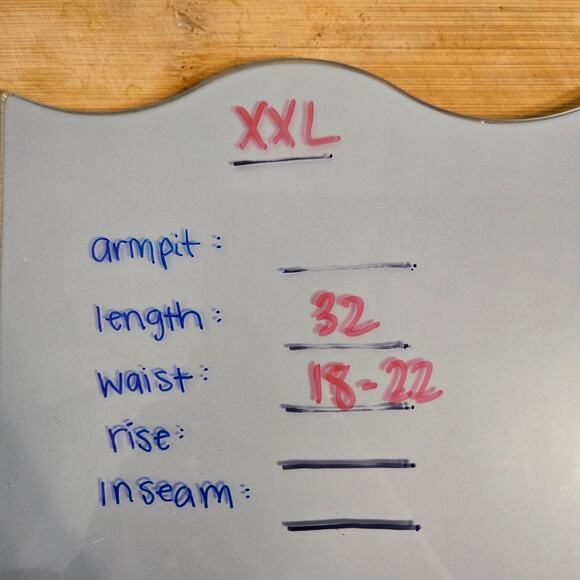 XXL
armpit:
length: 32
waist: 18-22
rise:
inseam: